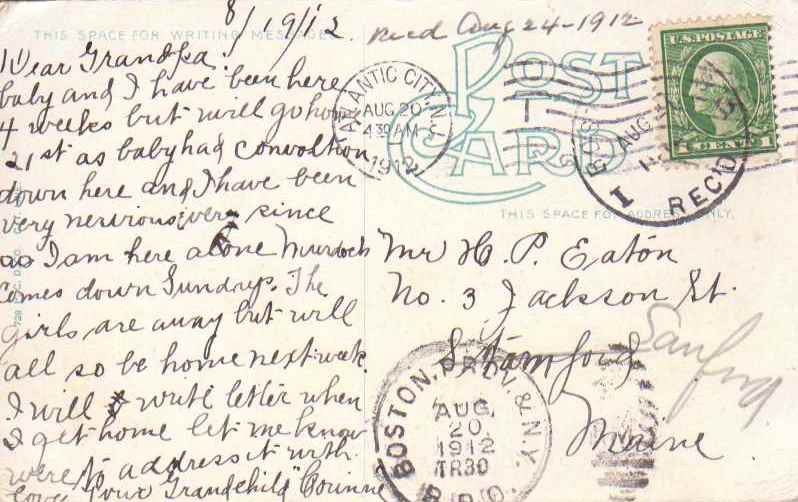 8/19/12
THIS SPACE FOR WRITING MESSAGE
Recd Aug 24-1912
Dear Grandpa!
baby and I have been here
4 weeks but will go home
21st as baby had convoltion
down here and I have been
very nervious ever since
as I am here alone Murdock
comes down Sundays. The
girls are away but will
all so be home next week.
I will write letter when
I get home let me know
were to address it with
love Your Grandchild "Corinne"
POST
CARD
ATLANTIC CITY, N.J.
AUG 20
4 30 AM
1912
U.S. POSTAGE
1 CENT 1
AUG
1
REC'D
THIS SPACE FOR ADDRESS ONLY.
Mr H. P. Eaton
No. 3 Jackson St.
Stamford
Sanford
Maine
BOSTON, & N.Y.
AUG
20
1912
TR30
R.P.O.